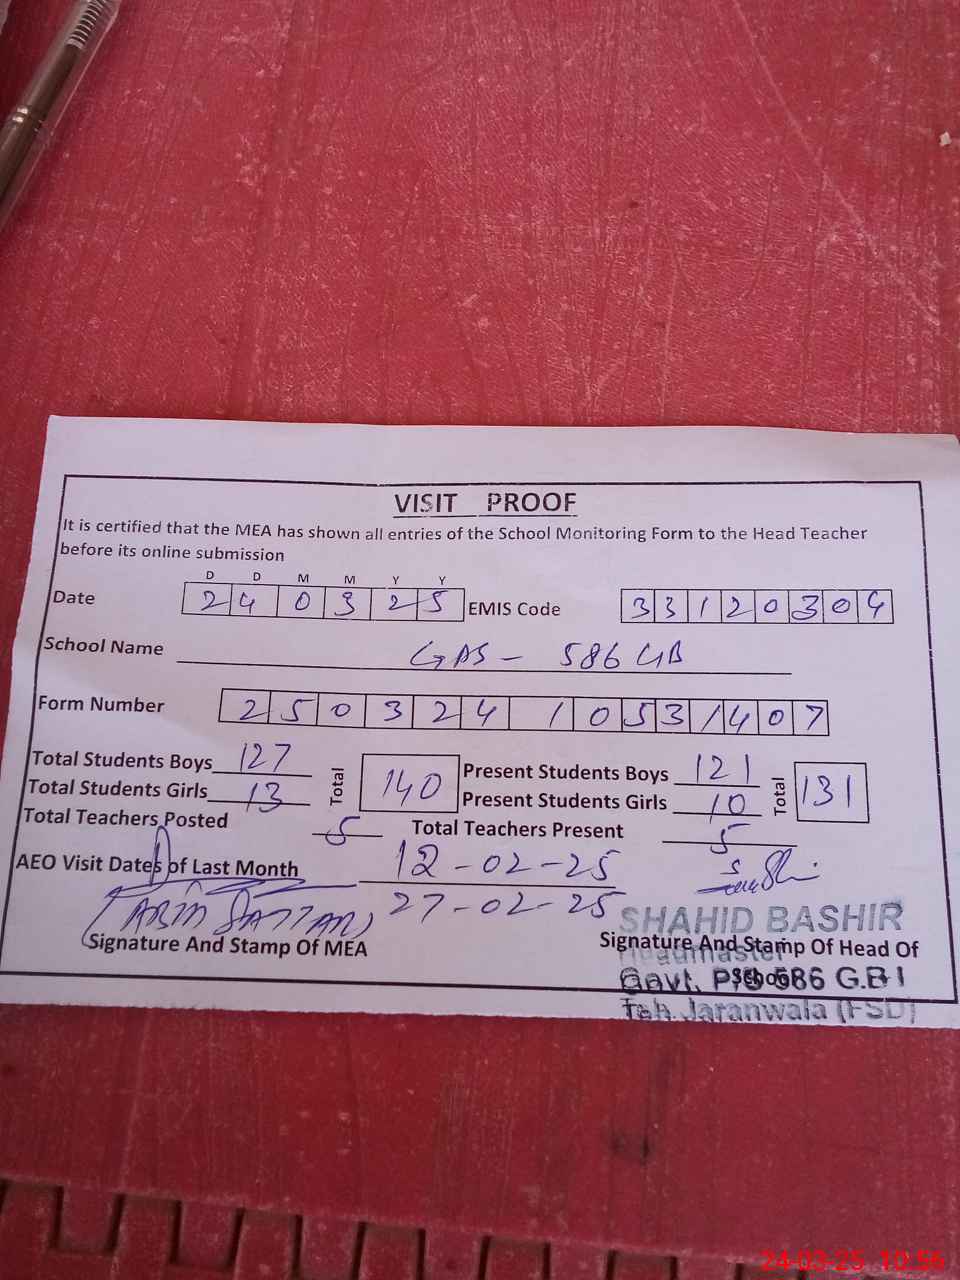 VISIT PROOF
It is certified that the MEA has shown all entries of the School Monitoring Form to the Head Teacher
before its online submission
D D M M Y Y
Date 2 4 0 3 2 5 EMIS Code 3 3 1 2 0 3 0 4
School Name GPS - 586 GB
Form Number 2 5 0 3 2 4 1 0 5 3 1 4 0 7
Total Students Boys 127 Total 140 Present Students Boys 121 Total 131
Total Students Girls 13 Present Students Girls 10
Total Teachers Posted 5 Total Teachers Present 5
AEO Visit Dates of Last Month 12-02-25
27-02-25
SATTAR
SHAHID BASHIR
Signature And Stamp Of MEA Signature And Stamp Of Head Of
Headmaster
School
Govt. P/S 586 G.B I
Teh. Jaranwala (FSD)
24-03-25 10:56